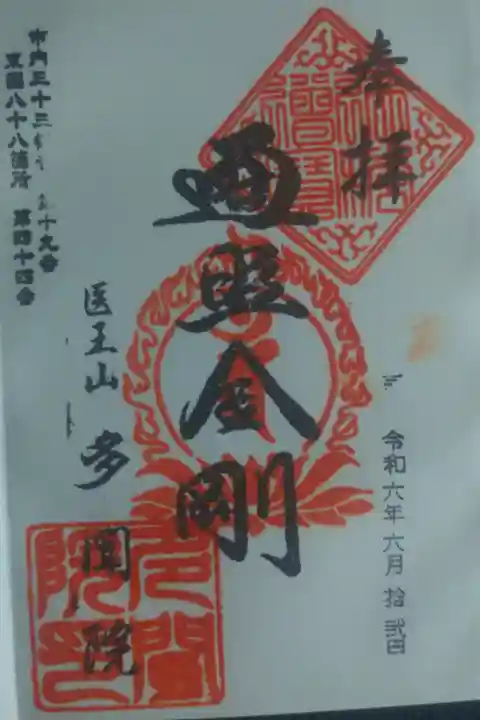 奉拝
令和六年六月拾弐日
遍照金剛
医王山 多聞院
東国八十八箇所 第四十四番
市内三十三
十九番
多聞院